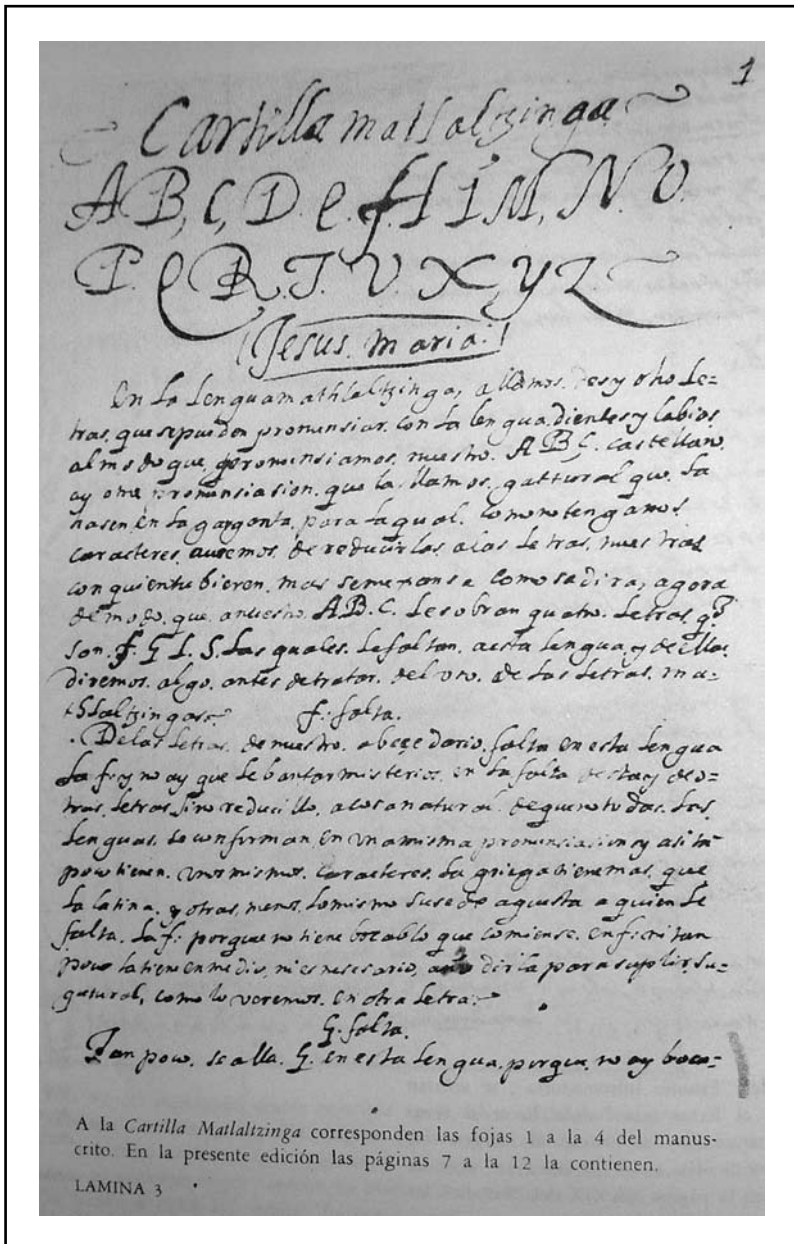 1
Cartilla matlaltzinga
A B, C, D. e. f. H I M, N. O.
P. Q R. T. V. X, Y Z
Jesus. maria.
En La Lengua mathlaltzinga, allamos. des y oho Le=
tras, que se pueden pronunsiar, con La lengua, dientes y labios,
al modo que, pronunsiamos, nuestro. A B C. castellano,
ay otra pronunsiasion, que la llamos, guttural que La
hasen en La garganta, para La qual, como no tengamos
caracteres, auremos, de reducirlos a las Letras, nuestras
con quien tubieren, mas semexansa como se dira, agora
de modo, que a nuestro. A.B.C. Le sobran quatro, Letras, q̃
son. f. G L. S. Las quales, Le faltan, a esta Lengua, y de ellas
diremos, algo, antes de tratar, del uso, de Las Letras, ma=
thlaltzingas. f. falta.
De las Letras, de nuestro, abecedario, falta en esta Lengua
La f. y no ay que Lebantar misterios, en La falta desta y de o=
tras, Letras, sino reducillo, a cosa natural, de que no todas, Las,
Lenguas, se conforman, en una misma pronunsiasion y asi tã
poco tienen, unos mismos, caracteres, La griega tiene mas, que
La latina, y otras, menos, Lo mismo susede aquesta a quien Le
falta, La f. porque no tiene bocablo que comiense, en f. ni tan
poco la tiene en medio, ni es nesesario, dirla para suplir, su=
gutural, como lo veremos, en otra Letra.
G. falta.
Tan poco, se alla, G. en esta Lengua, porque, no ay boca=
A la Cartilla Matlaltzinga corresponden las fojas 1 a la 4 del manus-
crito. En la presente edición las páginas 7 a la 12 la contienen.
LAMINA 3